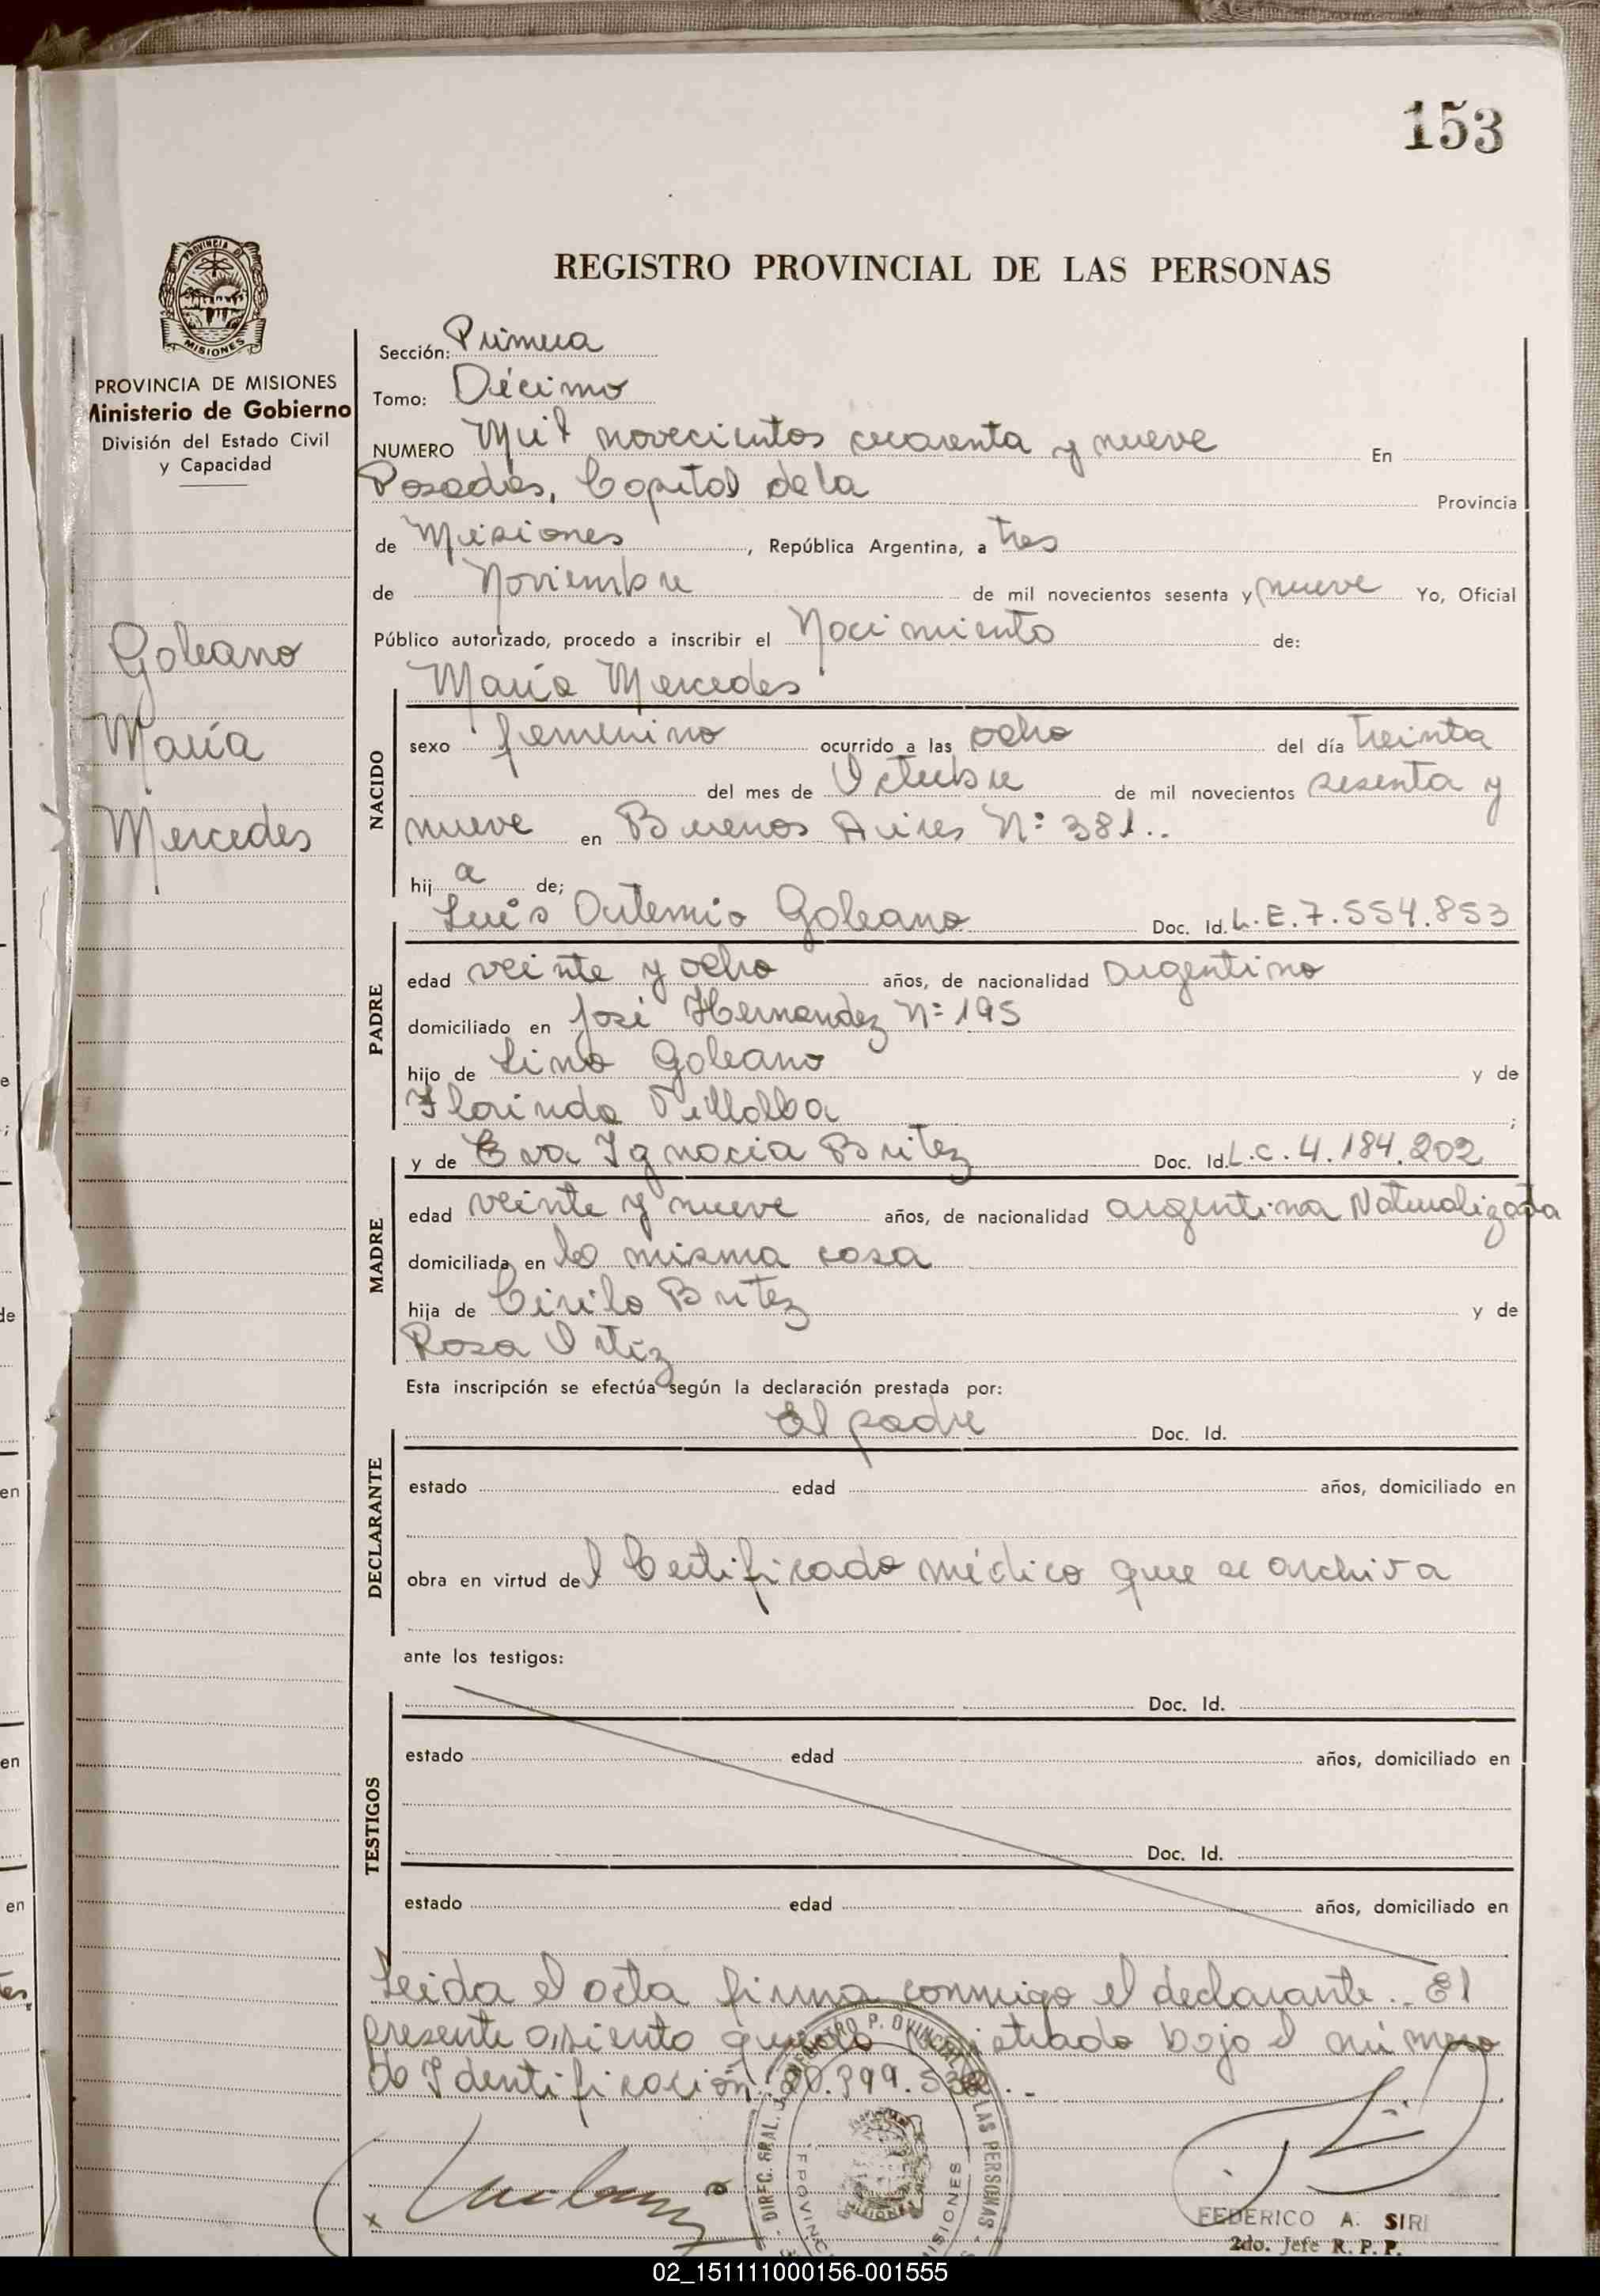 153
PROVINCIA DE MISIONES
Ministerio de Gobierno
División del Estado Civil
y Capacidad
Goleano
María
Mercedes
REGISTRO PROVINCIAL DE LAS PERSONAS
Sección: Primera
Tomo: Décimo
NUMERO Mil novecientos cuarenta y nueve En
Posadas, Capital de la Provincia
de Misiones, República Argentina, a tres
de Noviembre de mil novecientos sesenta y nueve Yo, Oficial
Público autorizado, procedo a inscribir el Nacimiento de:
María Mercedes
NACIDO
sexo femenino ocurrido a las ocho del día treinta
del mes de Octubre de mil novecientos sesenta y
nueve en Buenos Aires Nº 381..
hij a de;
Luis Artemio Goleano Doc. Id. L.E. 7.554.853
PADRE
edad veinte y ocho años, de nacionalidad argentino
domiciliado en José Hernandez Nº 195
hijo de Lino Goleano y de
Florinda Villalba ;
y de Eva Ignacia Britez Doc. Id. L.C. 4.184.202
MADRE
edad veinte y nueve años, de nacionalidad argentina Naturalizada
domiciliada en la misma casa
hija de Cirilo Britez y de
Rosa Ortiz
Esta inscripción se efectúa según la declaración prestada por:
El padre Doc. Id.
DECLARANTE
estado edad años, domiciliado en
obra en virtud del Certificado médico que se archiva
ante los testigos:
Doc. Id.
TESTIGOS
estado edad años, domiciliado en
Doc. Id.
estado edad años, domiciliado en
Leida el acta firma conmigo el declarante.. El
presente asiento queda registrado bajo el número
de Identificación:
DIREC. GRAL. REGISTRO PROVINCIAL DE LAS PERSONAS
PROVINCIA MISIONES
FEDERICO A. SIRI
2do. Jefe R. P. P.
02_151111000156-001555